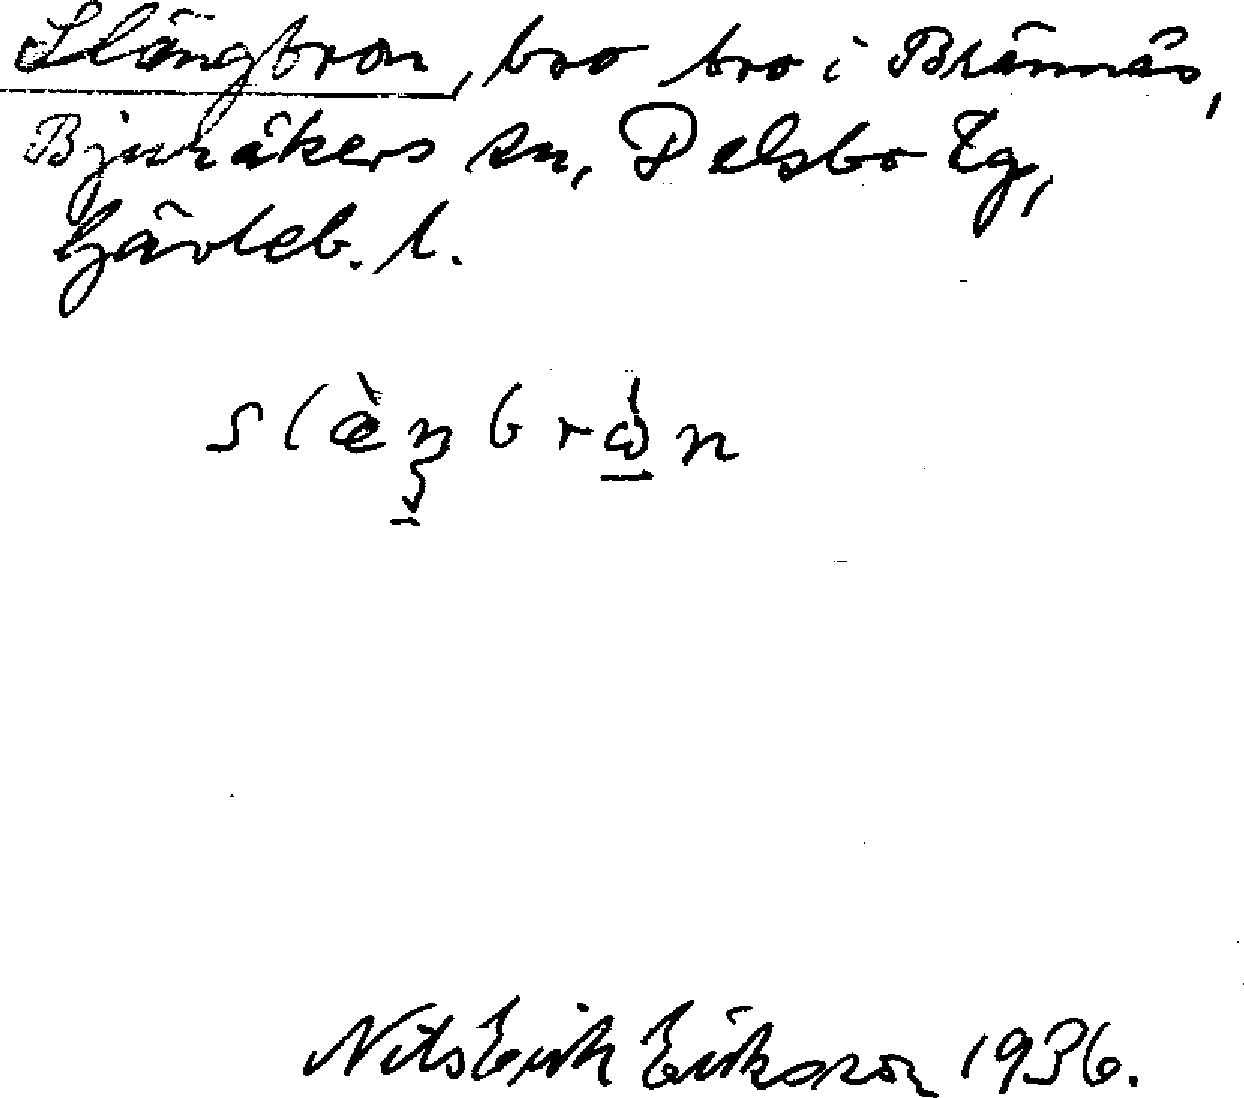 Slängbron, bro bro i Brännås,
Bjuråkers sn, Delsbo tg,
Gävleb. l.
slæ̀ŋbrὼn
Nils Erik Eriksson 1936.